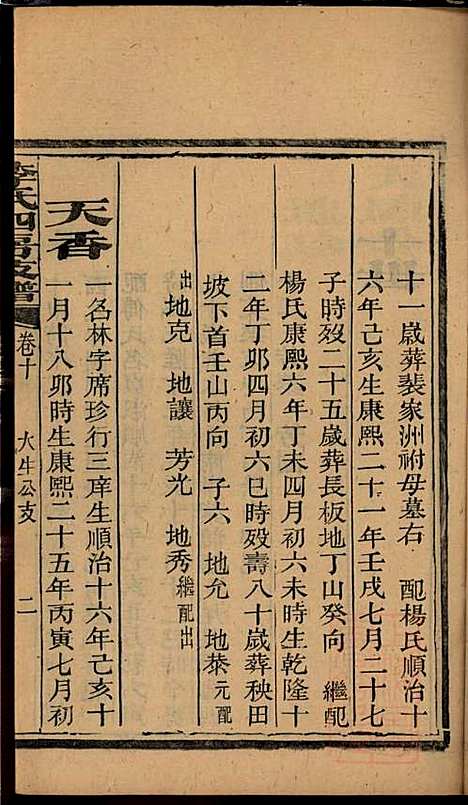 十一歲葬裴家洲祔母墓右　配楊氏順治十
六年己亥生康熙二十一年壬戌七月二十七
子時歿二十五歲葬長板地丁山癸向　繼配
楊氏康熙六年丁未四月初六未時生乾隆十
二年丁卯四月初六巳時歿壽八十歲葬秧田
坡下首壬山丙向　子六　地允　地恭元配
出地克　地讓　芳光　地秀繼配出
天香
名林字席珍行三庠生順治十六年己亥十
一月十八卯時生康熙二十五年丙寅七月初
氏四房支譜　卷十　大生公支　二